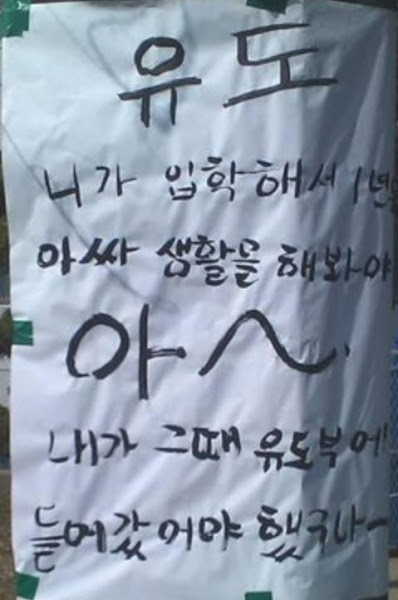 유도
니가 입학해서 1년을
아싸 생활을 해봐야
아~
내가 그때 유도부에
들어갔어야 했구나~